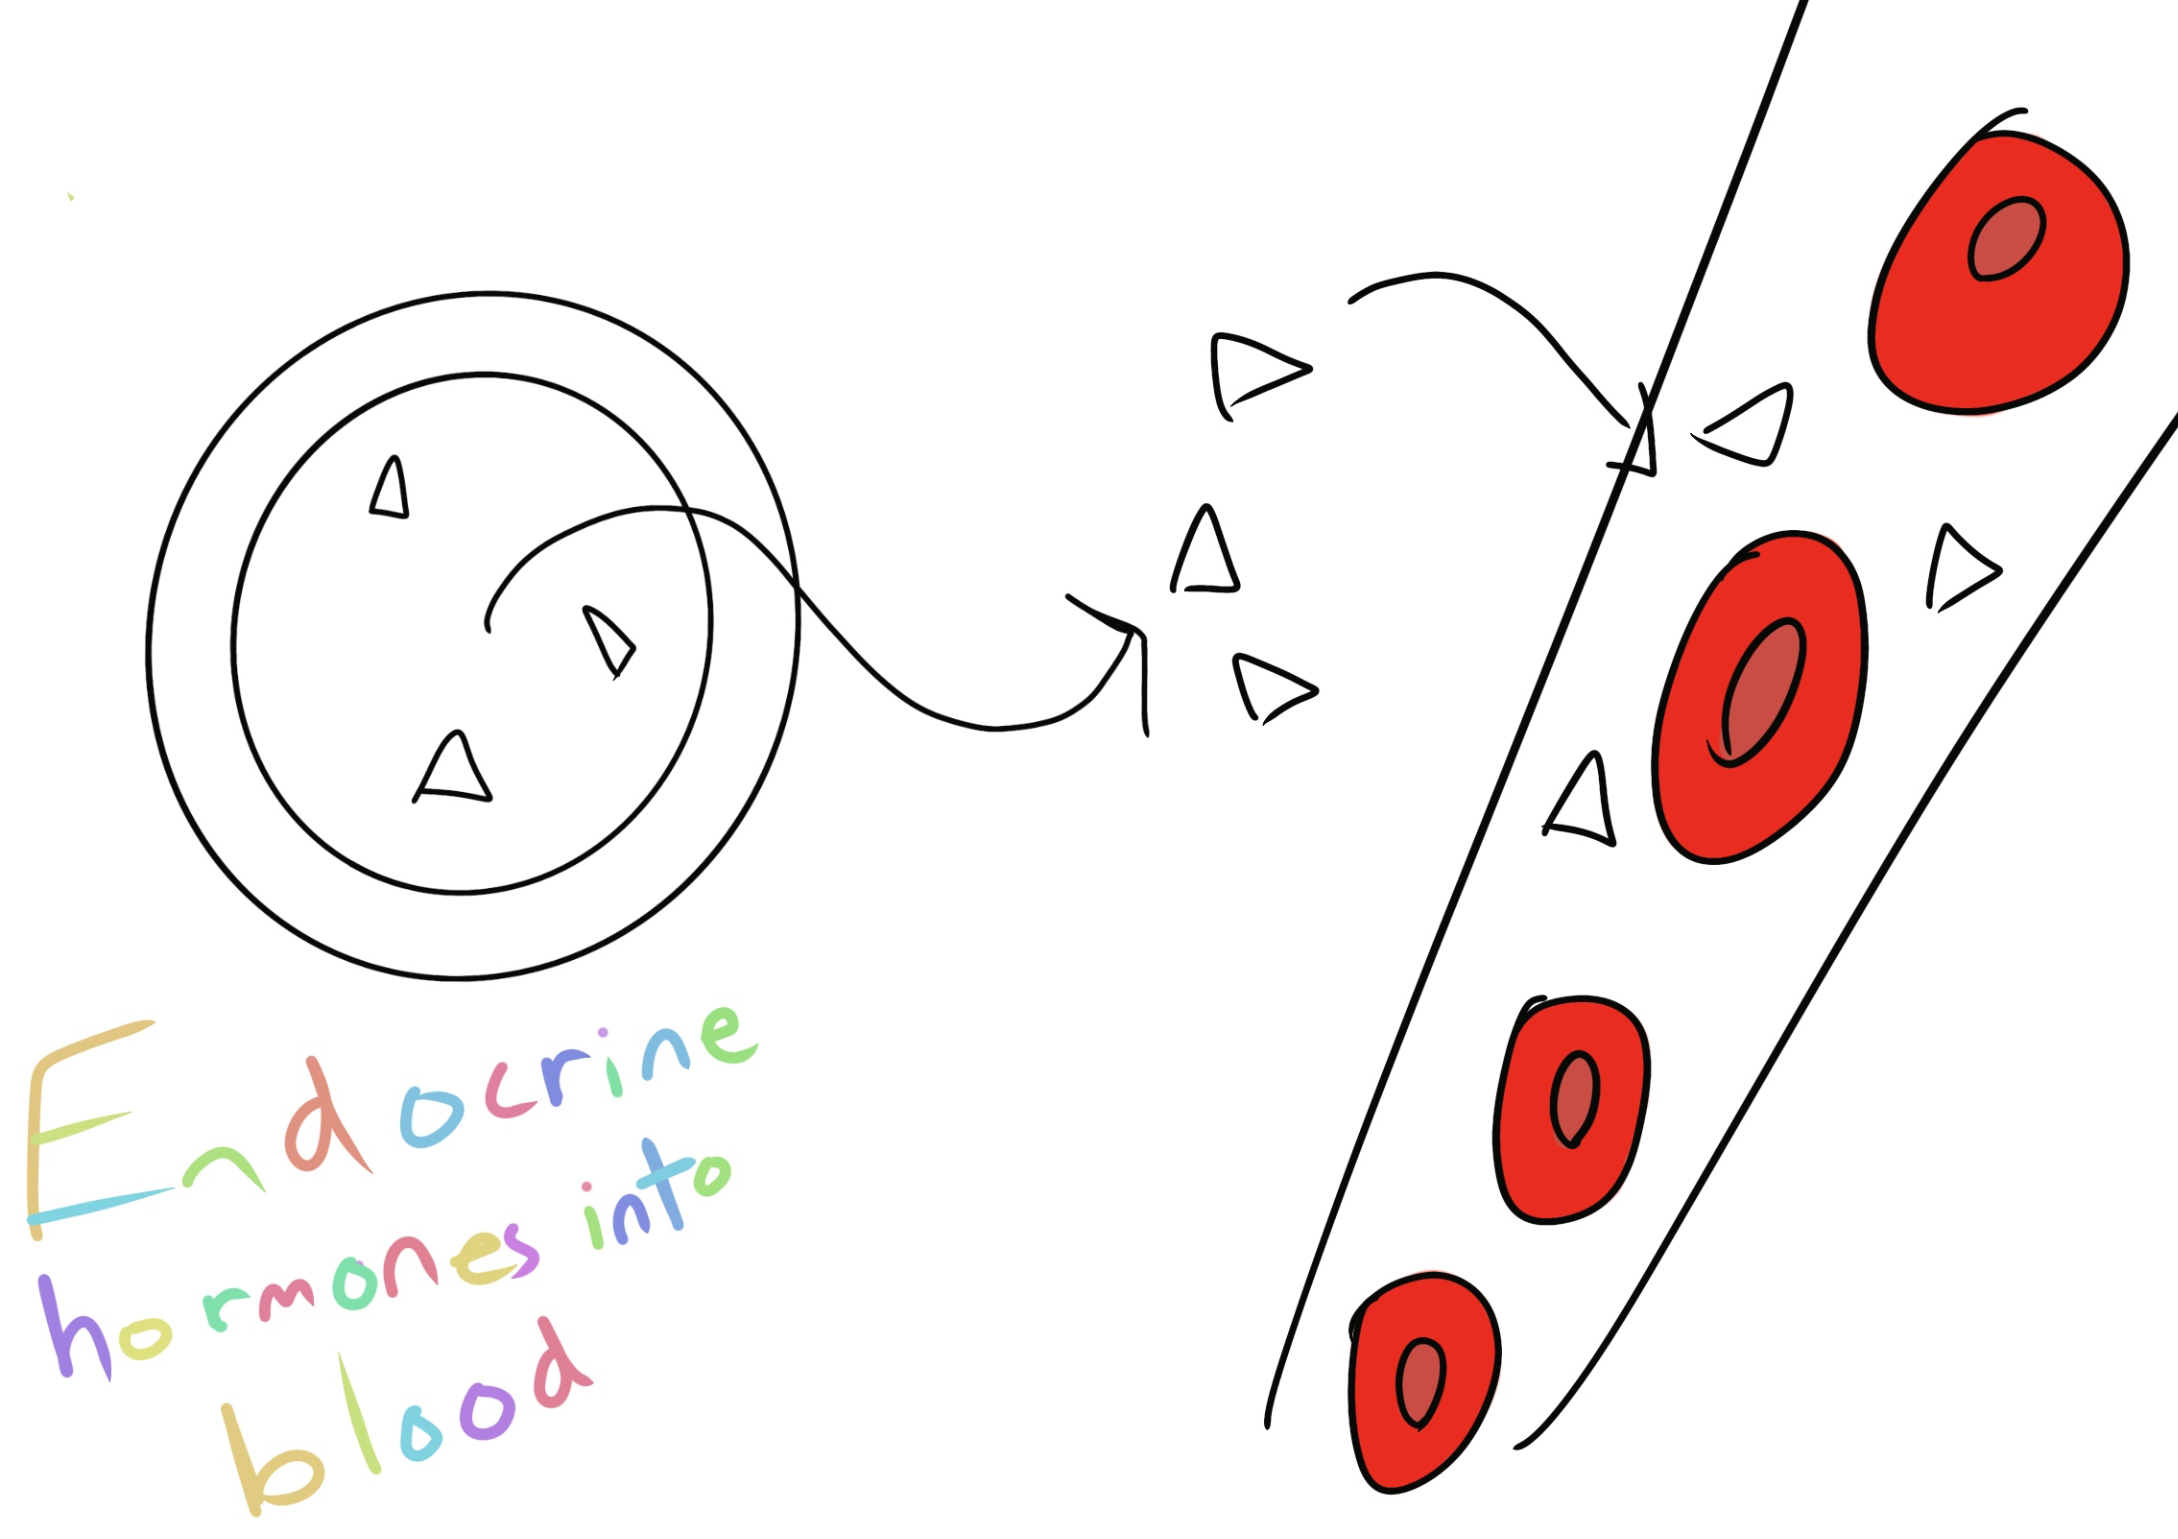 Endocrine
hormones into
blood